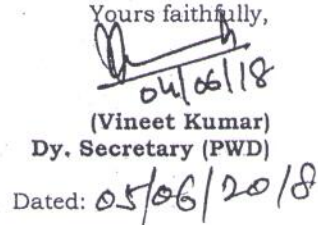 Yours faithfully,
04/06/18
(Vineet Kumar)
Dy. Secretary (PWD)
Dated: 05/06/2018